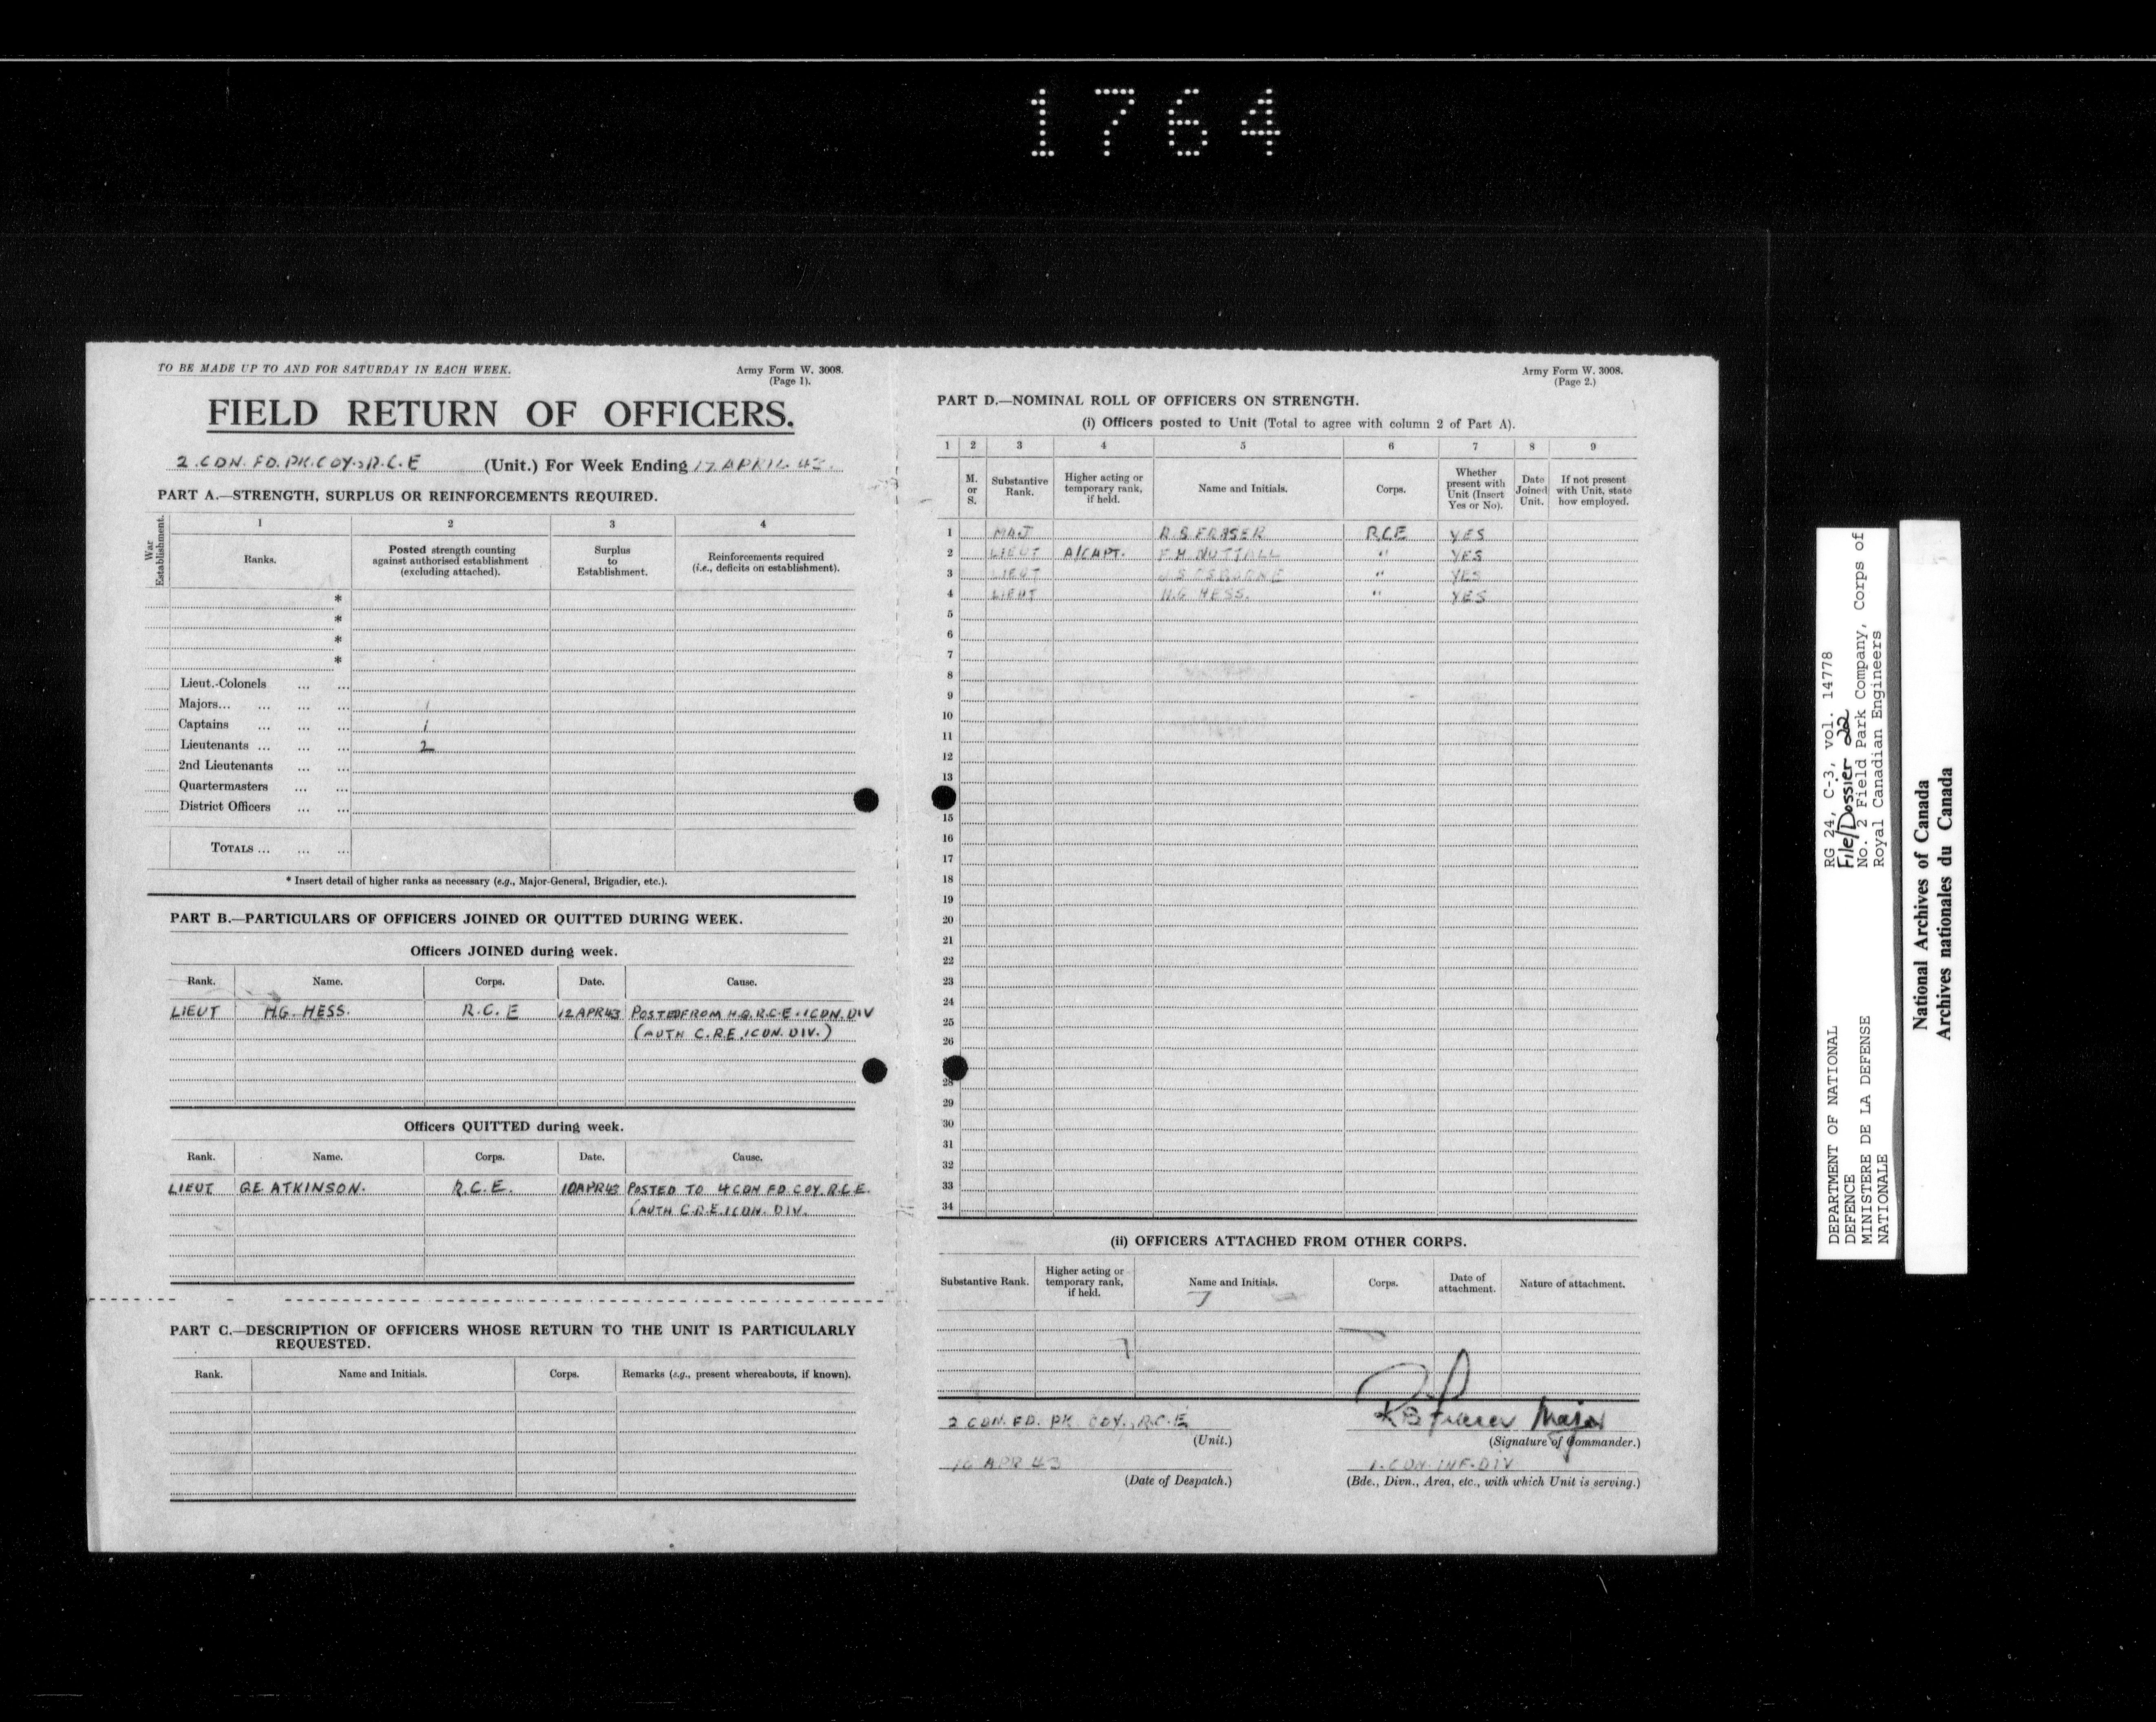 1764
TO BE MADE UP TO AND FOR SATURDAY IN EACH WEEK.
Army Form W. 3008.
(Page 1).
FIELD RETURN OF OFFICERS.
2 CDN. FD. PK. COY., R.C.E (Unit.) For Week Ending 17 APRIL 43.
PART A.—STRENGTH, SURPLUS OR REINFORCEMENTS REQUIRED.
War Establishment.
1 2 3 4
Ranks. Posted strength counting against authorised establishment (excluding attached). Surplus to Establishment. Reinforcements required (i.e., deficits on establishment).
*
*
*
*
Lieut.-Colonels ... ...
Majors... ... ... ... 1
Captains ... ... ... 1
Lieutenants ... ... ... 2
2nd Lieutenants ... ...
Quartermasters ... ...
District Officers ... ...
TOTALS ... ... ...
* Insert detail of higher ranks as necessary (e.g., Major-General, Brigadier, etc.).
PART B.—PARTICULARS OF OFFICERS JOINED OR QUITTED DURING WEEK.
Officers JOINED during week.
Rank. Name. Corps. Date. Cause.
LIEUT H.G. HESS. R.C.E 12 APR 43 POSTED FROM H.Q. R.C.E. 1 CDN. DIV
(AUTH C.R.E. 1 CDN. DIV.)
Officers QUITTED during week.
Rank. Name. Corps. Date. Cause.
LIEUT G.E. ATKINSON. R.C.E. 10 APR 43 POSTED TO 4 CDN FD COY. R.C.E.
(AUTH C.R.E. 1 CDN. DIV.
PART C.—DESCRIPTION OF OFFICERS WHOSE RETURN TO THE UNIT IS PARTICULARLY
REQUESTED.
Rank. Name and Initials. Corps. Remarks (e.g., present whereabouts, if known).
Army Form W. 3008.
(Page 2.)
PART D.—NOMINAL ROLL OF OFFICERS ON STRENGTH.
(i) Officers posted to Unit (Total to agree with column 2 of Part A).
1 2 3 4 5 6 7 8 9
M. or S. Substantive Rank. Higher acting or temporary rank, if held. Name and Initials. Corps. Whether present with Unit (Insert Yes or No). Date Joined Unit. If not present with Unit, state how employed.
1 MAJ R.B FRASER R.C.E YES
2 LIEUT A/CAPT. F.H. NUTTALL " YES
3 LIEUT J.S OSBORNE " YES
4 LIEUT H.G HESS. " YES
5
6
7
8
9
10
11
12
13
15
16
17
18
19
20
21
22
23
24
25
26
28
29
30
31
32
33
34
(ii) OFFICERS ATTACHED FROM OTHER CORPS.
Substantive Rank. Higher acting or temporary rank, if held. Name and Initials. Corps. Date of attachment. Nature of attachment.
2 CDN. FD. PK COY., R.C.E RB Fraser Major
(Unit.) (Signature of Commander.)
16 APR 43 1. CDN. INF. DIV
(Date of Despatch.) (Bde., Divn., Area, etc., with which Unit is serving.)
RG 24, C-3, vol. 14778
File/Dossier 22
No. 2 Field Park Company, Corps of
Royal Canadian Engineers
DEPARTMENT OF NATIONAL
DEFENCE
MINISTERE DE LA DEFENSE
NATIONALE
National Archives of Canada
Archives nationales du Canada